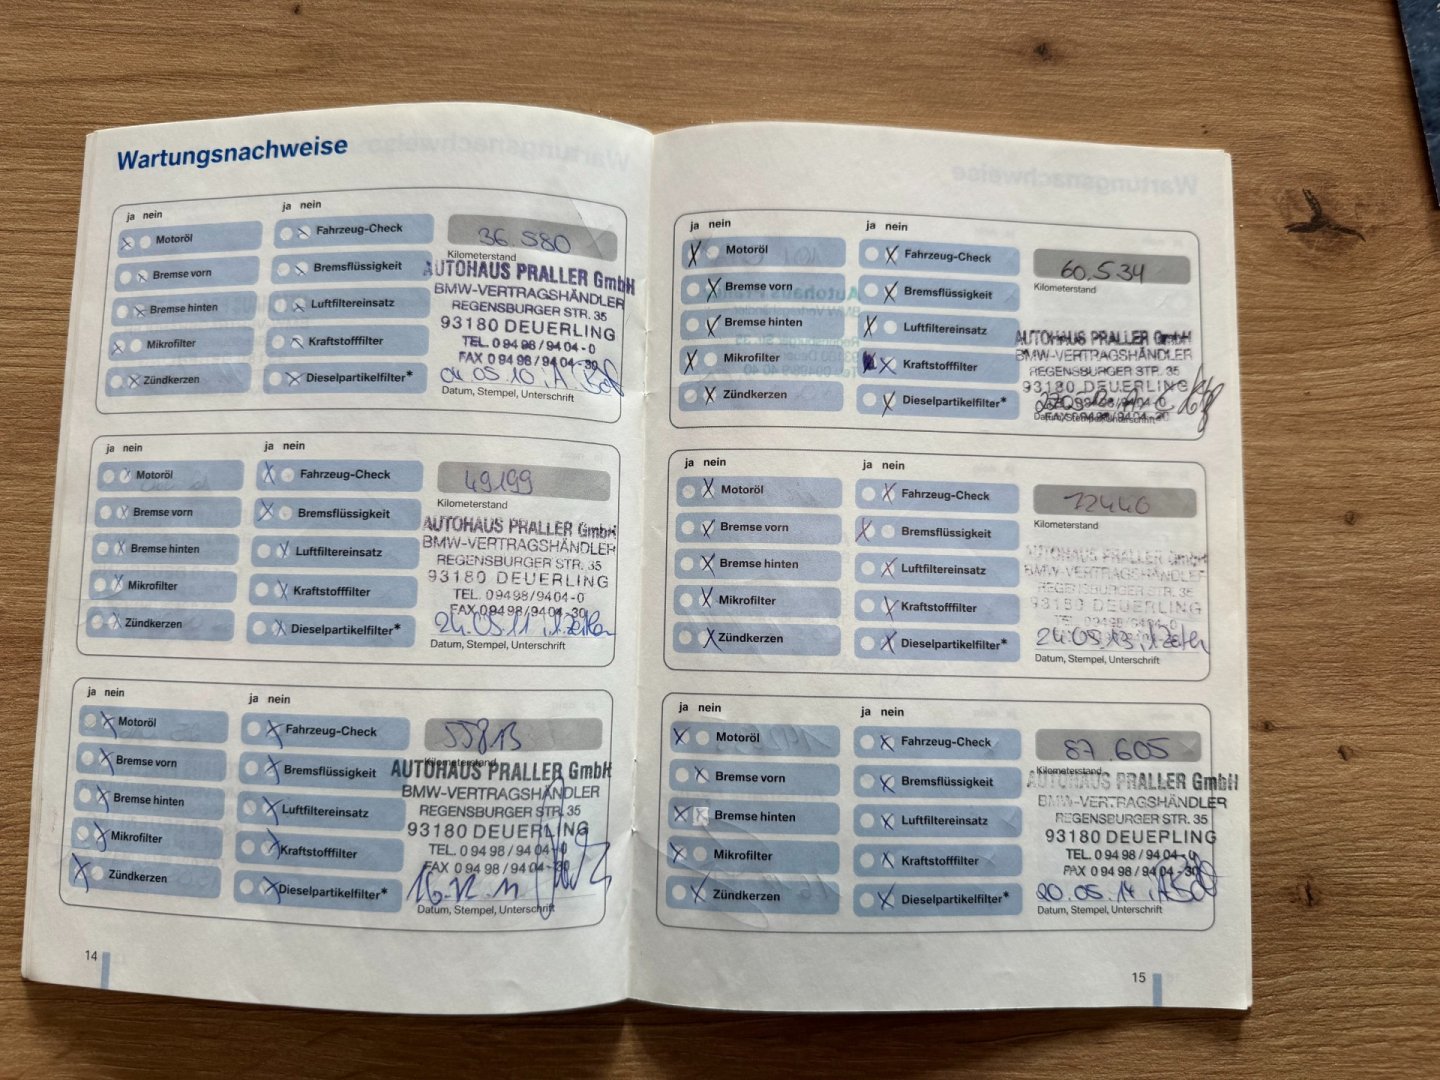 Wartungsnachweise
ja nein
ja nein
Motoröl
Fahrzeug-Check
36.580
Kilometerstand
Bremse vorn
Bremsflüssigkeit
AUTOHAUS PRALLER GmbH
BMW-VERTRAGSHÄNDLER
Bremse hinten
Luftfiltereinsatz
REGENSBURGER STR. 35
93180 DEUERLING
Mikrofilter
Kraftstofffilter
TEL. 0 94 98 / 94 04 - 0
FAX 0 94 98 / 94 04 - 30
Zündkerzen
Dieselpartikelfilter*
04.05.10
Datum, Stempel, Unterschrift
ja nein
ja nein
Motoröl
Fahrzeug-Check
49199
Kilometerstand
Bremse vorn
Bremsflüssigkeit
AUTOHAUS PRALLER GmbH
BMW-VERTRAGSHÄNDLER
Bremse hinten
Luftfiltereinsatz
REGENSBURGER STR. 35
93180 DEUERLING
Mikrofilter
Kraftstofffilter
TEL. 0 94 98 / 94 04 - 0
FAX 0 94 98 / 94 04 - 30
Zündkerzen
Dieselpartikelfilter*
24.05.11
Datum, Stempel, Unterschrift
ja nein
ja nein
Motoröl
Fahrzeug-Check
55813
Kilometerstand
Bremse vorn
Bremsflüssigkeit
AUTOHAUS PRALLER GmbH
BMW-VERTRAGSHÄNDLER
Bremse hinten
Luftfiltereinsatz
REGENSBURGER STR. 35
93180 DEUERLING
Mikrofilter
Kraftstofffilter
TEL. 0 94 98 / 94 04 - 0
FAX 0 94 98 / 94 04 - 30
Zündkerzen
Dieselpartikelfilter*
16.12.11
Datum, Stempel, Unterschrift
14
ja nein
ja nein
Motoröl
Fahrzeug-Check
60.534
Kilometerstand
Bremse vorn
Bremsflüssigkeit
Bremse hinten
Luftfiltereinsatz
AUTOHAUS PRALLER GmbH
BMW-VERTRAGSHÄNDLER
Mikrofilter
Kraftstofffilter
REGENSBURGER STR. 35
93180 DEUERLING
Zündkerzen
Dieselpartikelfilter*
Datum, Stempel, Unterschrift
ja nein
ja nein
Motoröl
Fahrzeug-Check
72440
Kilometerstand
Bremse vorn
Bremsflüssigkeit
AUTOHAUS PRALLER GmbH
BMW-VERTRAGSHÄNDLER
Bremse hinten
Luftfiltereinsatz
REGENSBURGER STR. 35
93180 DEUERLING
Mikrofilter
Kraftstofffilter
Zündkerzen
Dieselpartikelfilter*
24.05.13
Datum, Stempel, Unterschrift
ja nein
ja nein
Motoröl
Fahrzeug-Check
87.605
Kilometerstand
Bremse vorn
Bremsflüssigkeit
AUTOHAUS PRALLER GmbH
BMW-VERTRAGSHÄNDLER
Bremse hinten
Luftfiltereinsatz
REGENSBURGER STR. 35
93180 DEUERLING
Mikrofilter
Kraftstofffilter
TEL. 0 94 98 / 94 04 - 0
FAX 0 94 98 / 94 04 - 30
Zündkerzen
Dieselpartikelfilter*
20.05.14
Datum, Stempel, Unterschrift
15